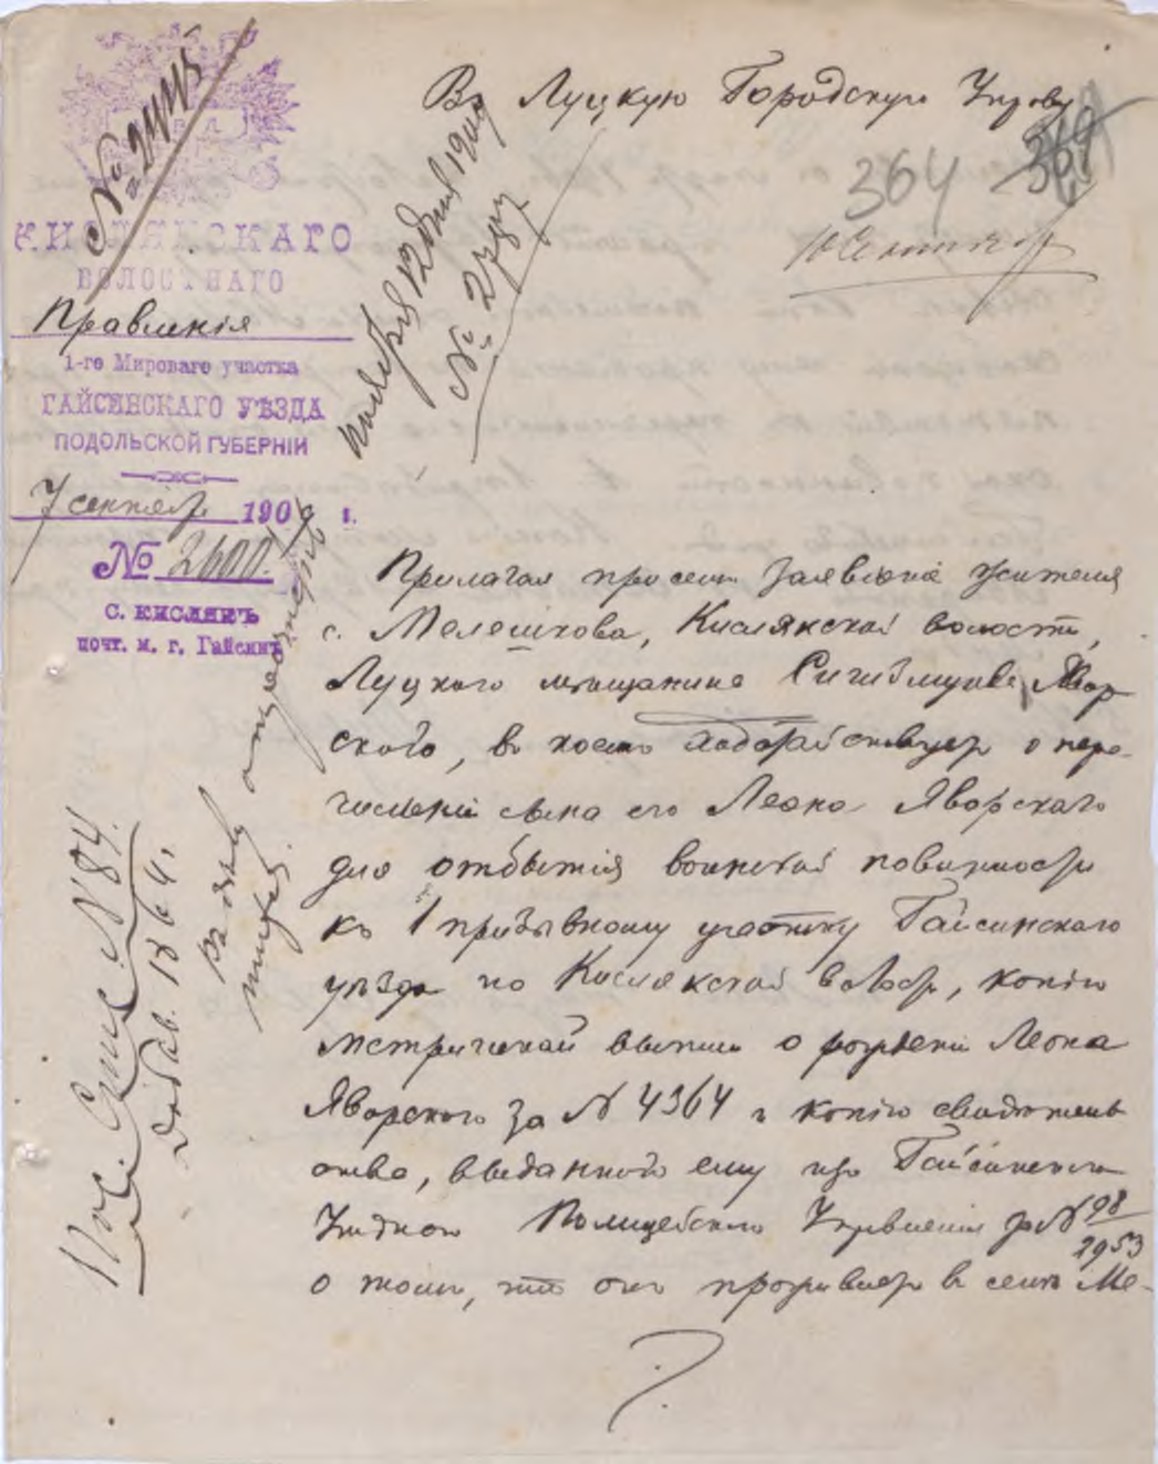 Въ Луцкую Городскую Управу
№ 2444
364
369
КИСЛЯКСКАГО
ВОЛОСТНАГО
Правленія
1-го Мироваго участка
ГАЙСИНСКАГО УѢЗДА
ПОДОЛЬСКОЙ ГУБЕРНІИ
7 сентяб. 1909 г.
№ 2600
С. КИСЛЯКЪ
почт. м. г. Гайсинъ
ноября 12 дня 1909
№ 27
Пос. Спис. № 84.
Добав. 1864 г.
Прилагая при семъ заявленіе жителя
с. Мелешкова, Кислякской волости,
Луцкого мѣщанина Сигизмунда Явор-
скаго, в коемъ ходатайствуетъ о пере-
численіи сына его Леона Яворскаго
для отбытія воинской повинности
къ 1 призывному участку Гайсинского
уѣзда по Кислякской волости, копію
метрической выписи о рожденіи Леона
Яворского за № 4364 и копію свидѣтель
ства, выданного ему изъ Гайсинского
Уѣздного Полицейского Управленія за № 98/2953
о томъ, что онъ проживаетъ в селѣ Ме-